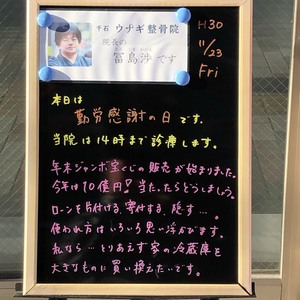 千石 ウナギ整骨院
院長の
冨島渉です
H30
11/23
Fri
本日は
勤労感謝の日です。
当院は14時まで診療します。
年末ジャンボ宝くじの販売が始まりました。
今年は10億円?当たったらどうしましょう。
ローンを片付ける、寄付する、隠す…。
使われ方はいろいろ思い浮かびます。
私なら…とりあえず家の冷蔵庫を
大きなものに買い換えたいです。